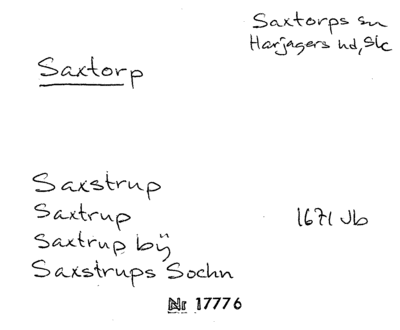 Saxtorps sn
Harjagers hd, Slc
Saxtorp
Saxstrup
Saxtrup 1671 Jb
Saxtrup bÿ
Saxstrups Sochn
Nr 17776